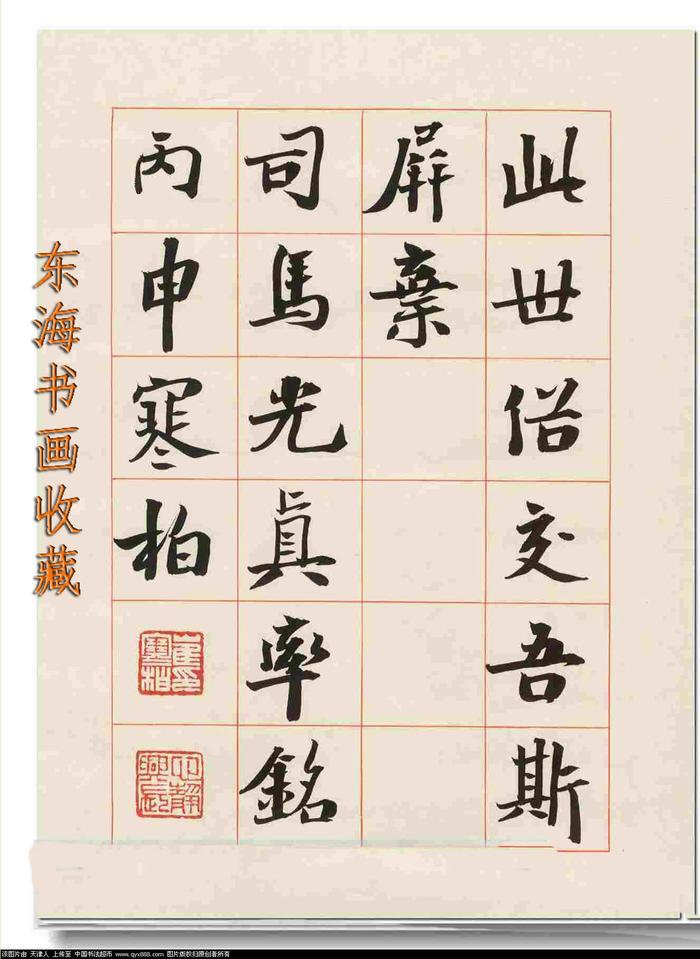 此世俗交吾斯
屏棄
司馬光眞率銘
丙申寒柏
崔印寒柏
东海书画收藏
该图片由 天津人 上传至 中国书法超市 www.qyx888.com 图片版权归原创者所有